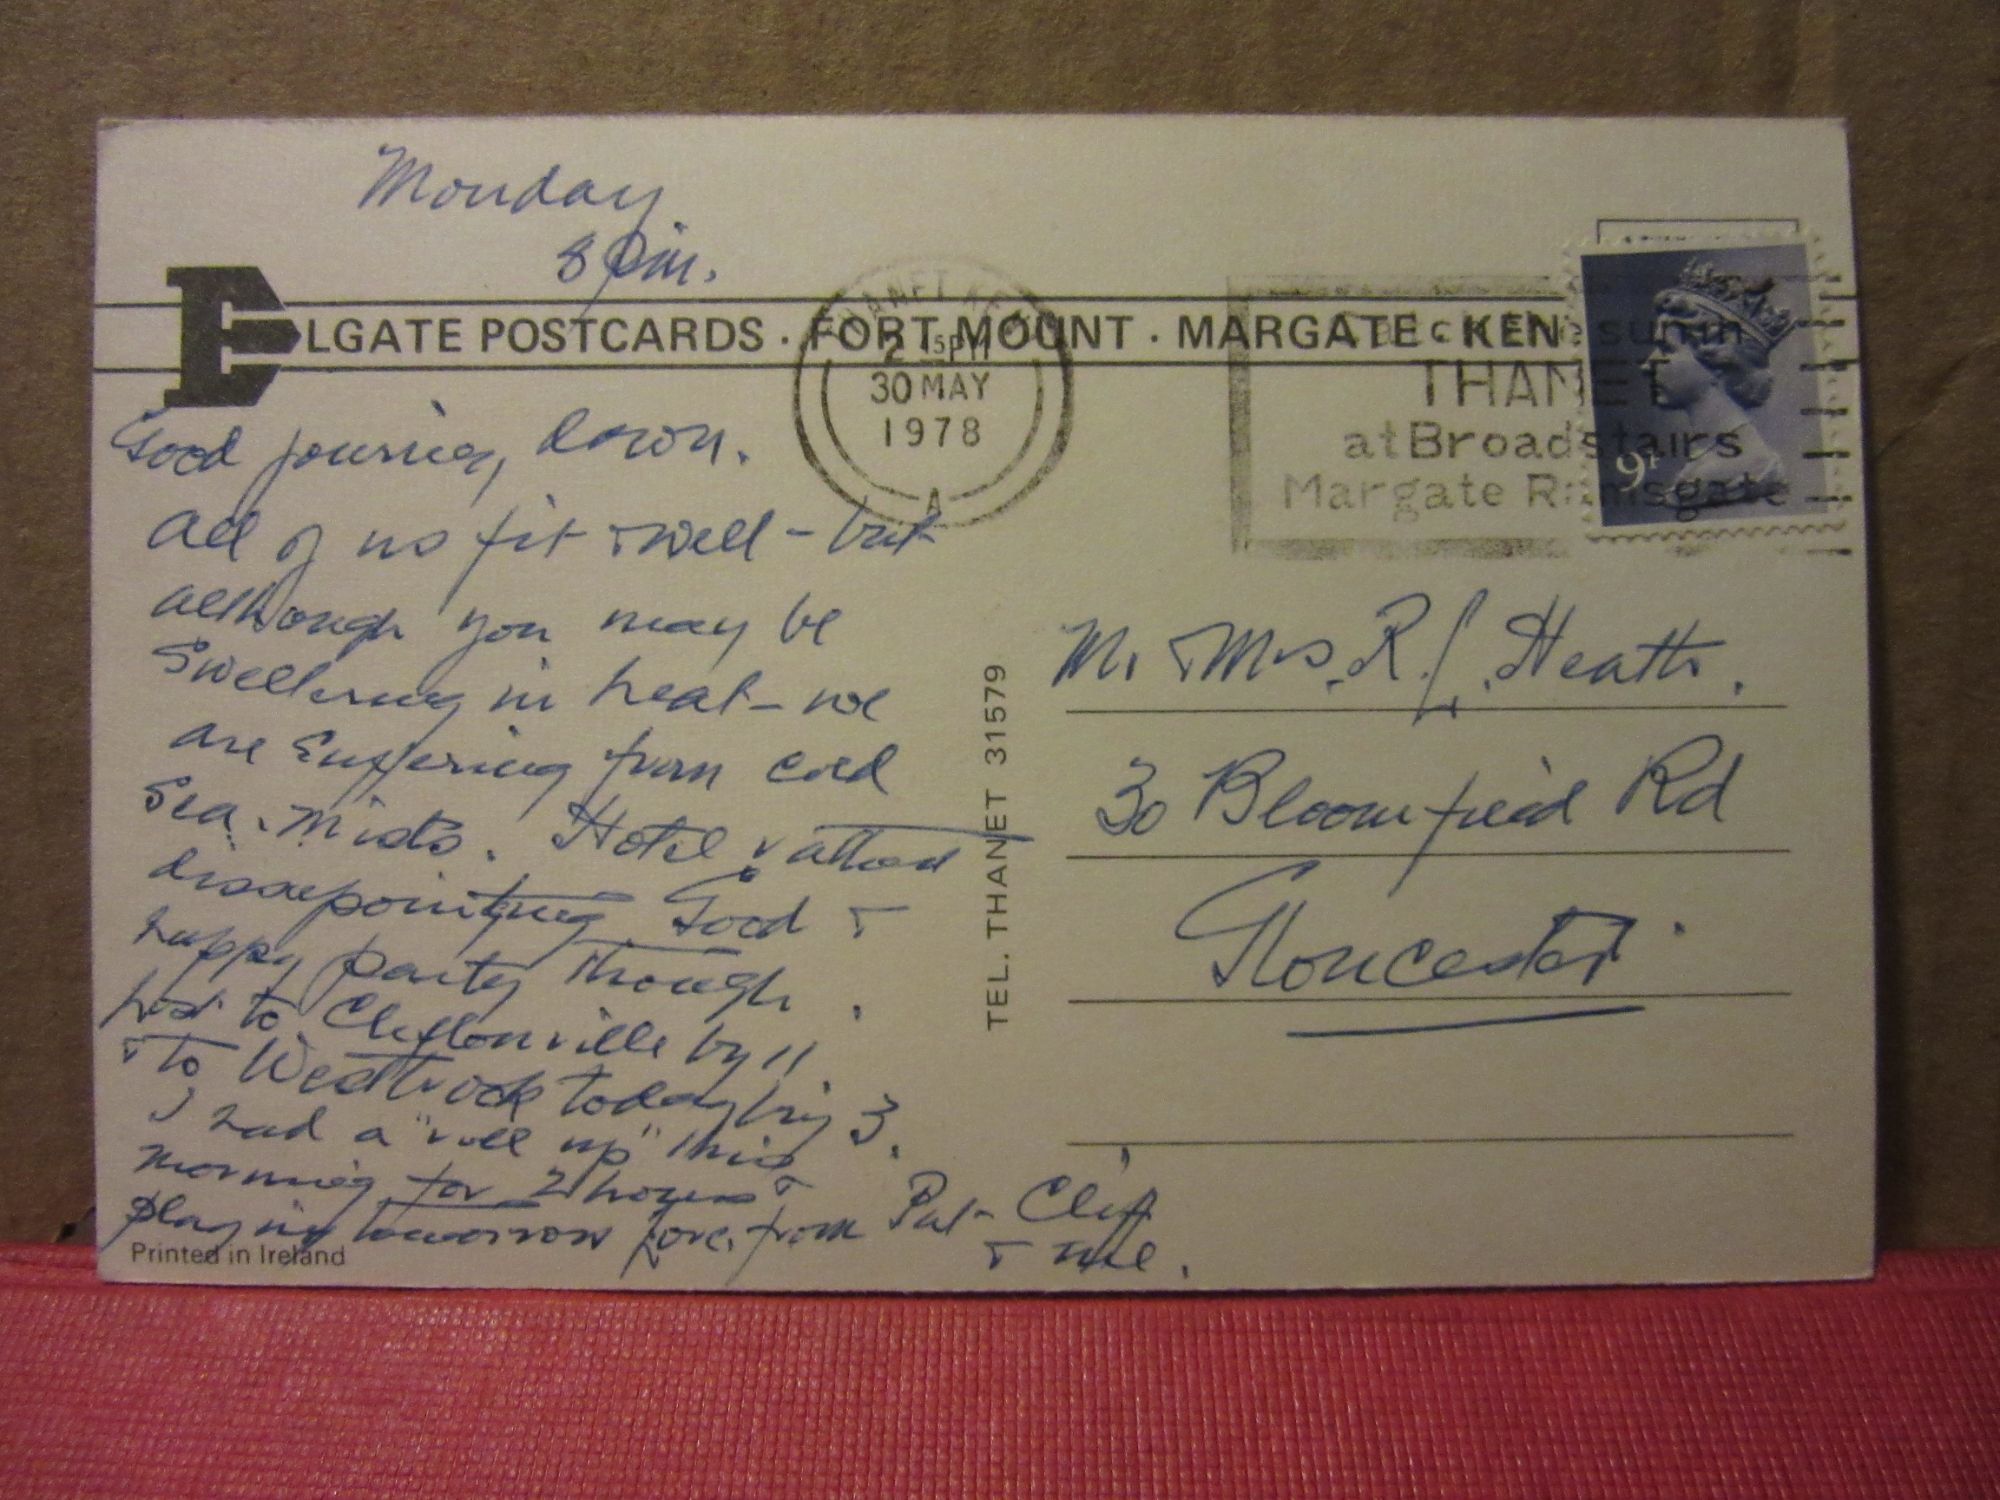 Monday
8 pm.
ELGATE POSTCARDS · FORT MOUNT · MARGATE · KENT
THANET KENT
2 15PM
30 MAY
1978
A
sun in
THANET
at Broadstairs
Margate Ramsgate
9P
Good journey down.
All of us fit & well - but
although you may be
Sweltering in heat - we
are Suffering from cold
Sea. Mists. Hotel rather
dissapointing Good &
happy party though.
lost to Cliftonville by 11
& to Westbrook today by 3.
I had a "roll up" this
morning for 2 hours &
playing tomorrow Love, from Pat - Cliff
& me.
Printed in Ireland
TEL. THANET 31579
Mr & Mrs. R. L. Heath.
30 Bloomfield Rd
Gloucester.